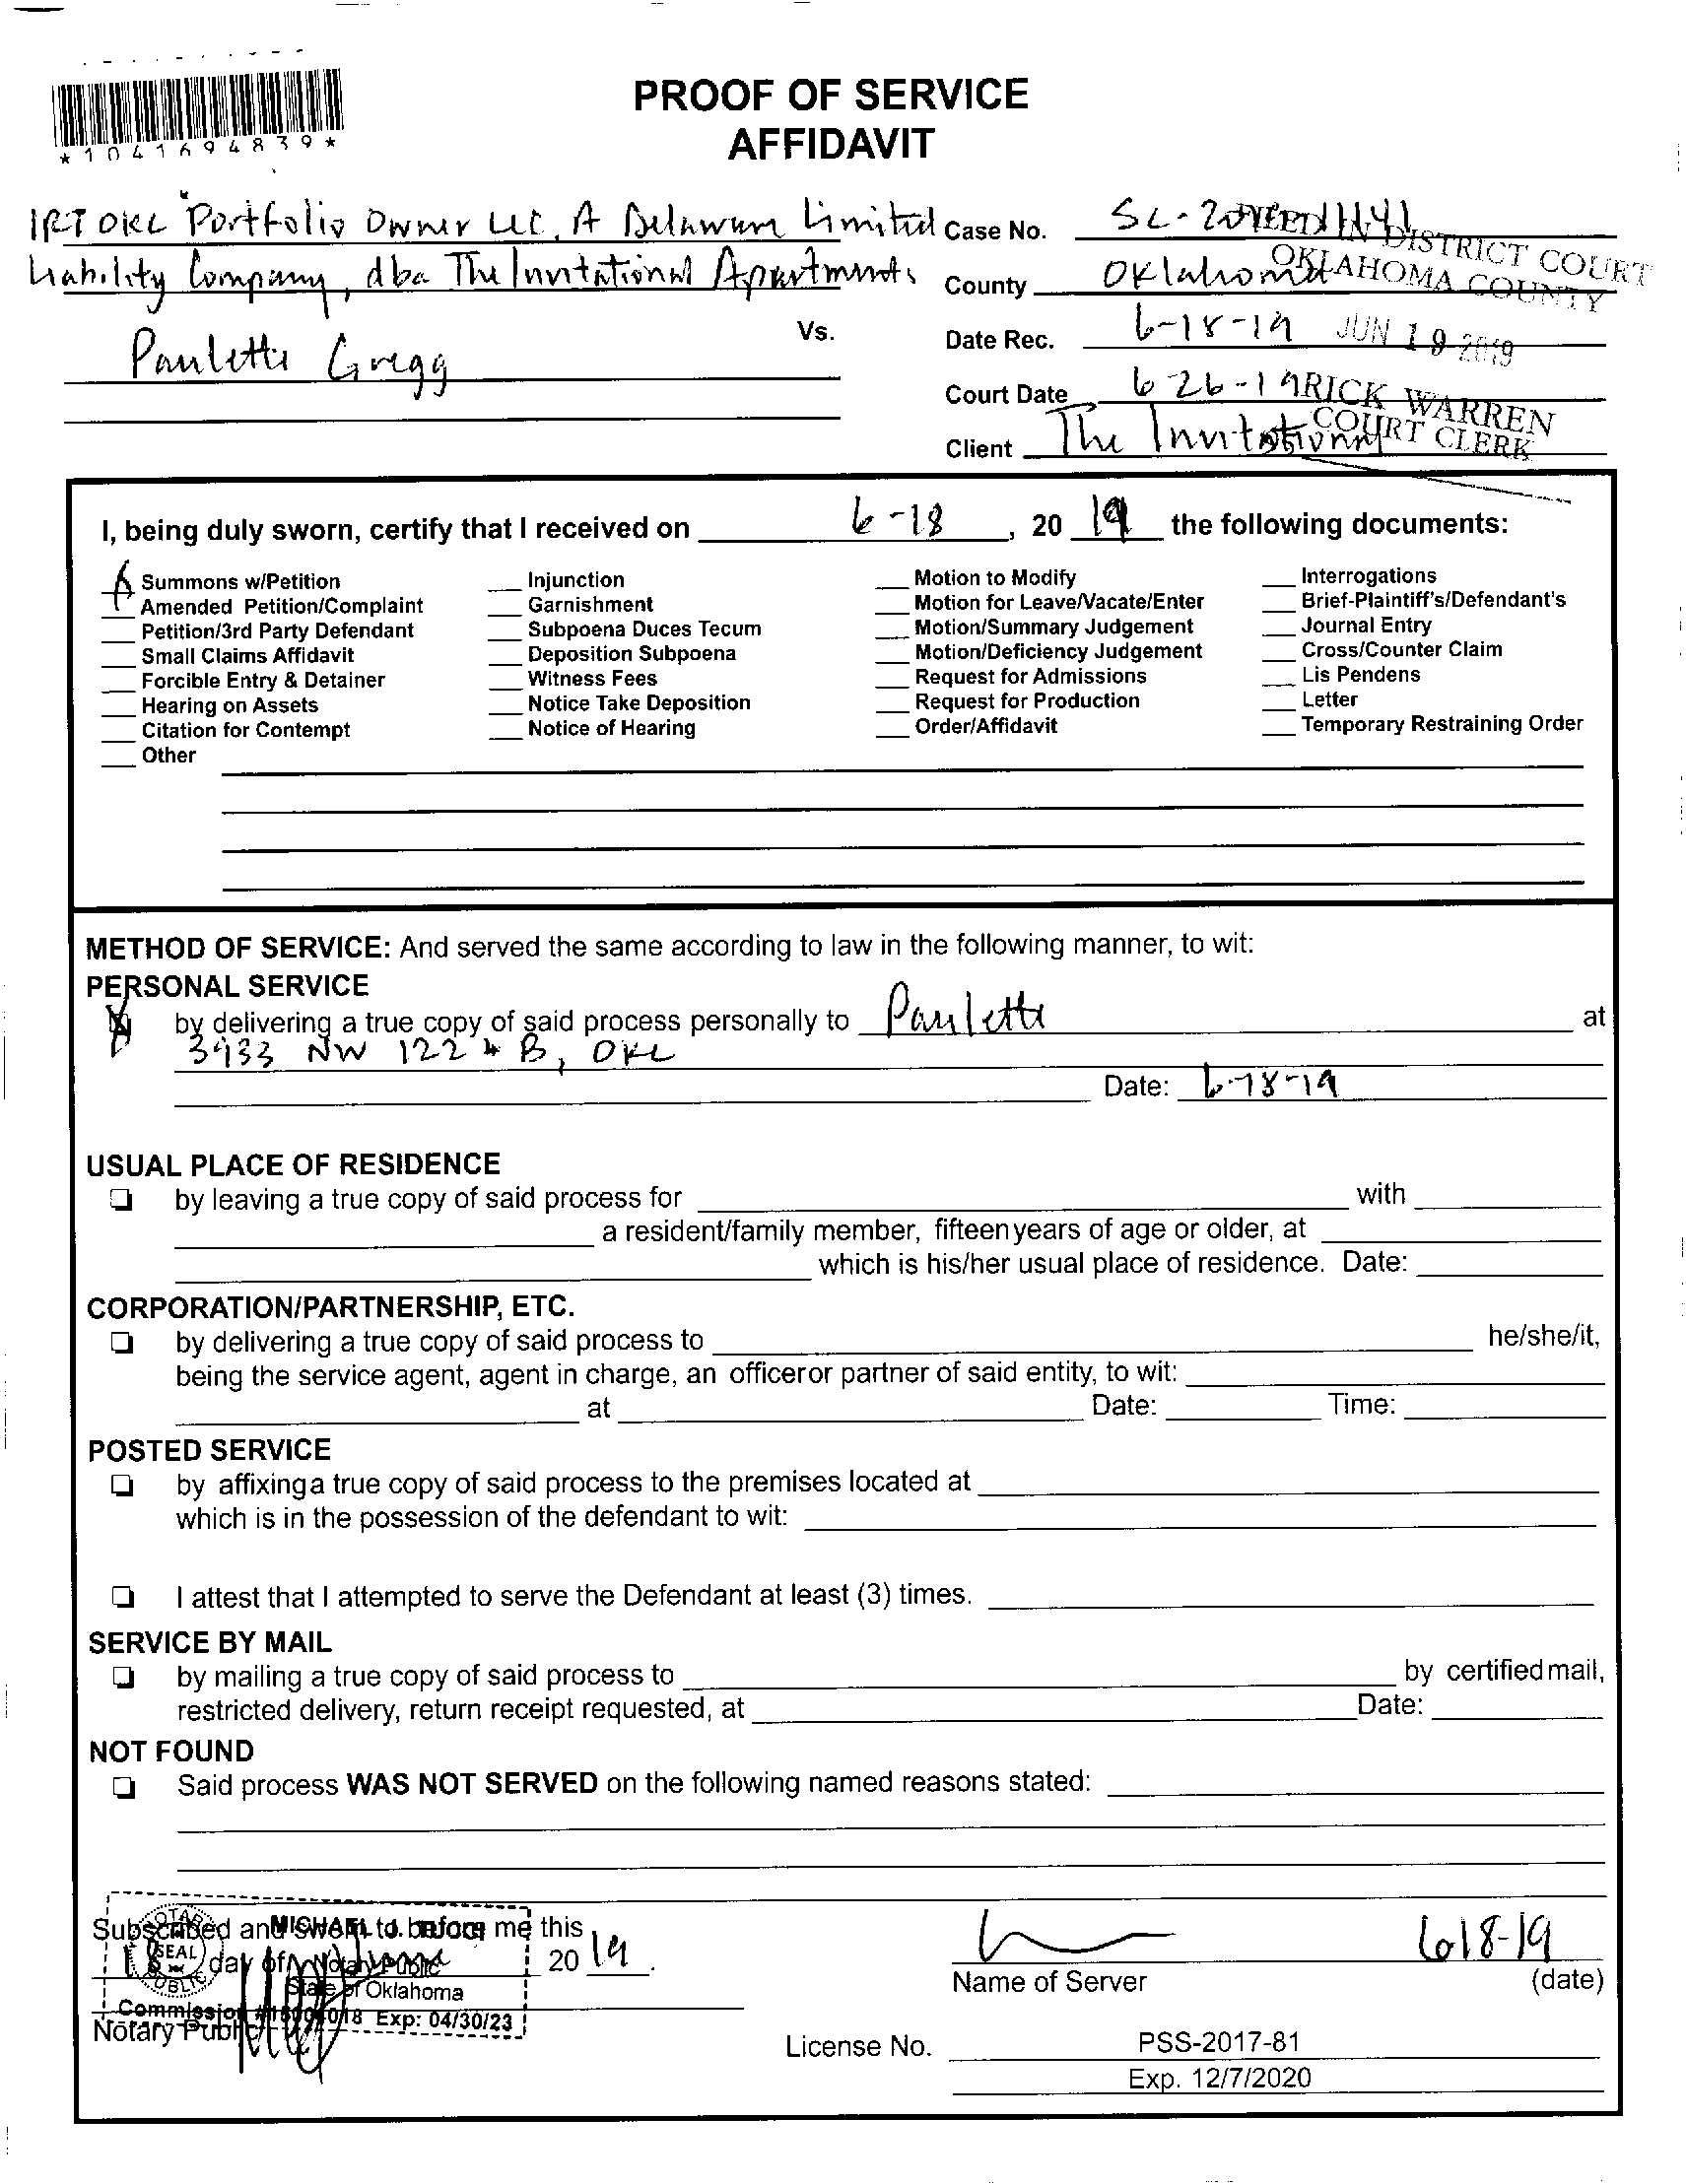 *1041694839*
PROOF OF SERVICE
AFFIDAVIT
IRT OKC Portfolio Owner LLC, A Delaware Limited
Liability Company, dba The Invitational Apartments
Vs.
Paulette Gregg
Case No. SC-
County Oklahoma
Date Rec. 6-18-19
Court Date 6-26-19
Client The Invitational
FILED IN DISTRICT COURT
OKLAHOMA COUNTY
JUN 19 2019
RICK WARREN
COURT CLERK
I, being duly sworn, certify that I received on 6-18, 20 19 the following documents:
Summons w/Petition
Amended Petition/Complaint
Petition/3rd Party Defendant
Small Claims Affidavit
Forcible Entry & Detainer
Hearing on Assets
Citation for Contempt
Other
Injunction
Garnishment
Subpoena Duces Tecum
Deposition Subpoena
Witness Fees
Notice Take Deposition
Notice of Hearing
Motion to Modify
Motion for Leave/Vacate/Enter
Motion/Summary Judgement
Motion/Deficiency Judgement
Request for Admissions
Request for Production
Order/Affidavit
Interrogations
Brief-Plaintiff's/Defendant's
Journal Entry
Cross/Counter Claim
Lis Pendens
Letter
Temporary Restraining Order
METHOD OF SERVICE: And served the same according to law in the following manner, to wit:
PERSONAL SERVICE
by delivering a true copy of said process personally to Paulette at
NW 122 # B, OKC
Date: 6-18-19
USUAL PLACE OF RESIDENCE
by leaving a true copy of said process for with
a resident/family member, fifteen years of age or older, at
which is his/her usual place of residence. Date:
CORPORATION/PARTNERSHIP, ETC.
by delivering a true copy of said process to he/she/it,
being the service agent, agent in charge, an officer or partner of said entity, to wit:
at Date: Time:
POSTED SERVICE
by affixing a true copy of said process to the premises located at
which is in the possession of the defendant to wit:
I attest that I attempted to serve the Defendant at least (3) times.
SERVICE BY MAIL
by mailing a true copy of said process to by certified mail,
restricted delivery, return receipt requested, at Date:
NOT FOUND
Said process WAS NOT SERVED on the following named reasons stated:
Subscribed and sworn to before me this
18 day of June 20 19.
Notary Public
NOTARY SEAL PUBLIC
MICHAEL J.
Notary Public
State of Oklahoma
Commission Exp: 04/30/23
6-18-19
Name of Server (date)
License No. PSS-2017-81
Exp. 12/7/2020